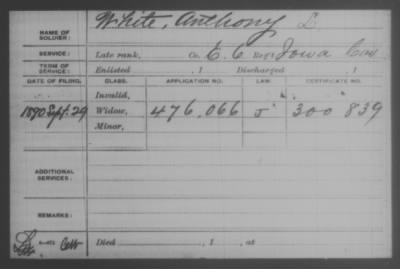 NAME OF SOLDIER: White, Anthony L
SERVICE: Late rank, Co. E. 6 Reg't Iowa Cav
TERM OF SERVICE: Enlisted , 1 Discharged , 1
DATE OF FILING. CLASS. APPLICATION NO. LAW. CERTIFICATE NO.
Invalid, " "
1890 Sept. 29 Widow, 476,066 J 300 839
Minor,
ADDITIONAL SERVICES:
REMARKS:
Died , 1 , at